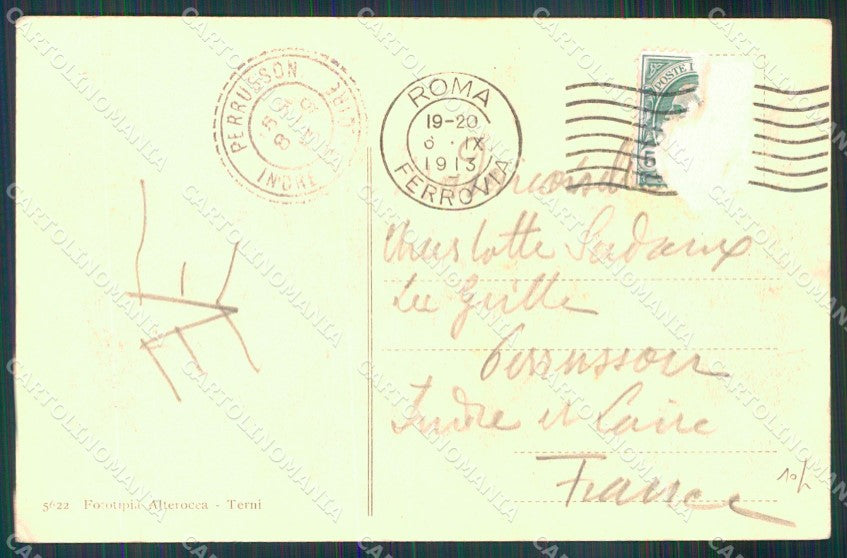 PERRUSSON
INDRE
ROMA
19-20
IX
1913
FERROVIA
POSTE I
Charlotte Sadaux
La Grille
Perrusson
Indre et Loire
France
5622 Fototipia Alterocca - Terni
CARTOLINOMANIA